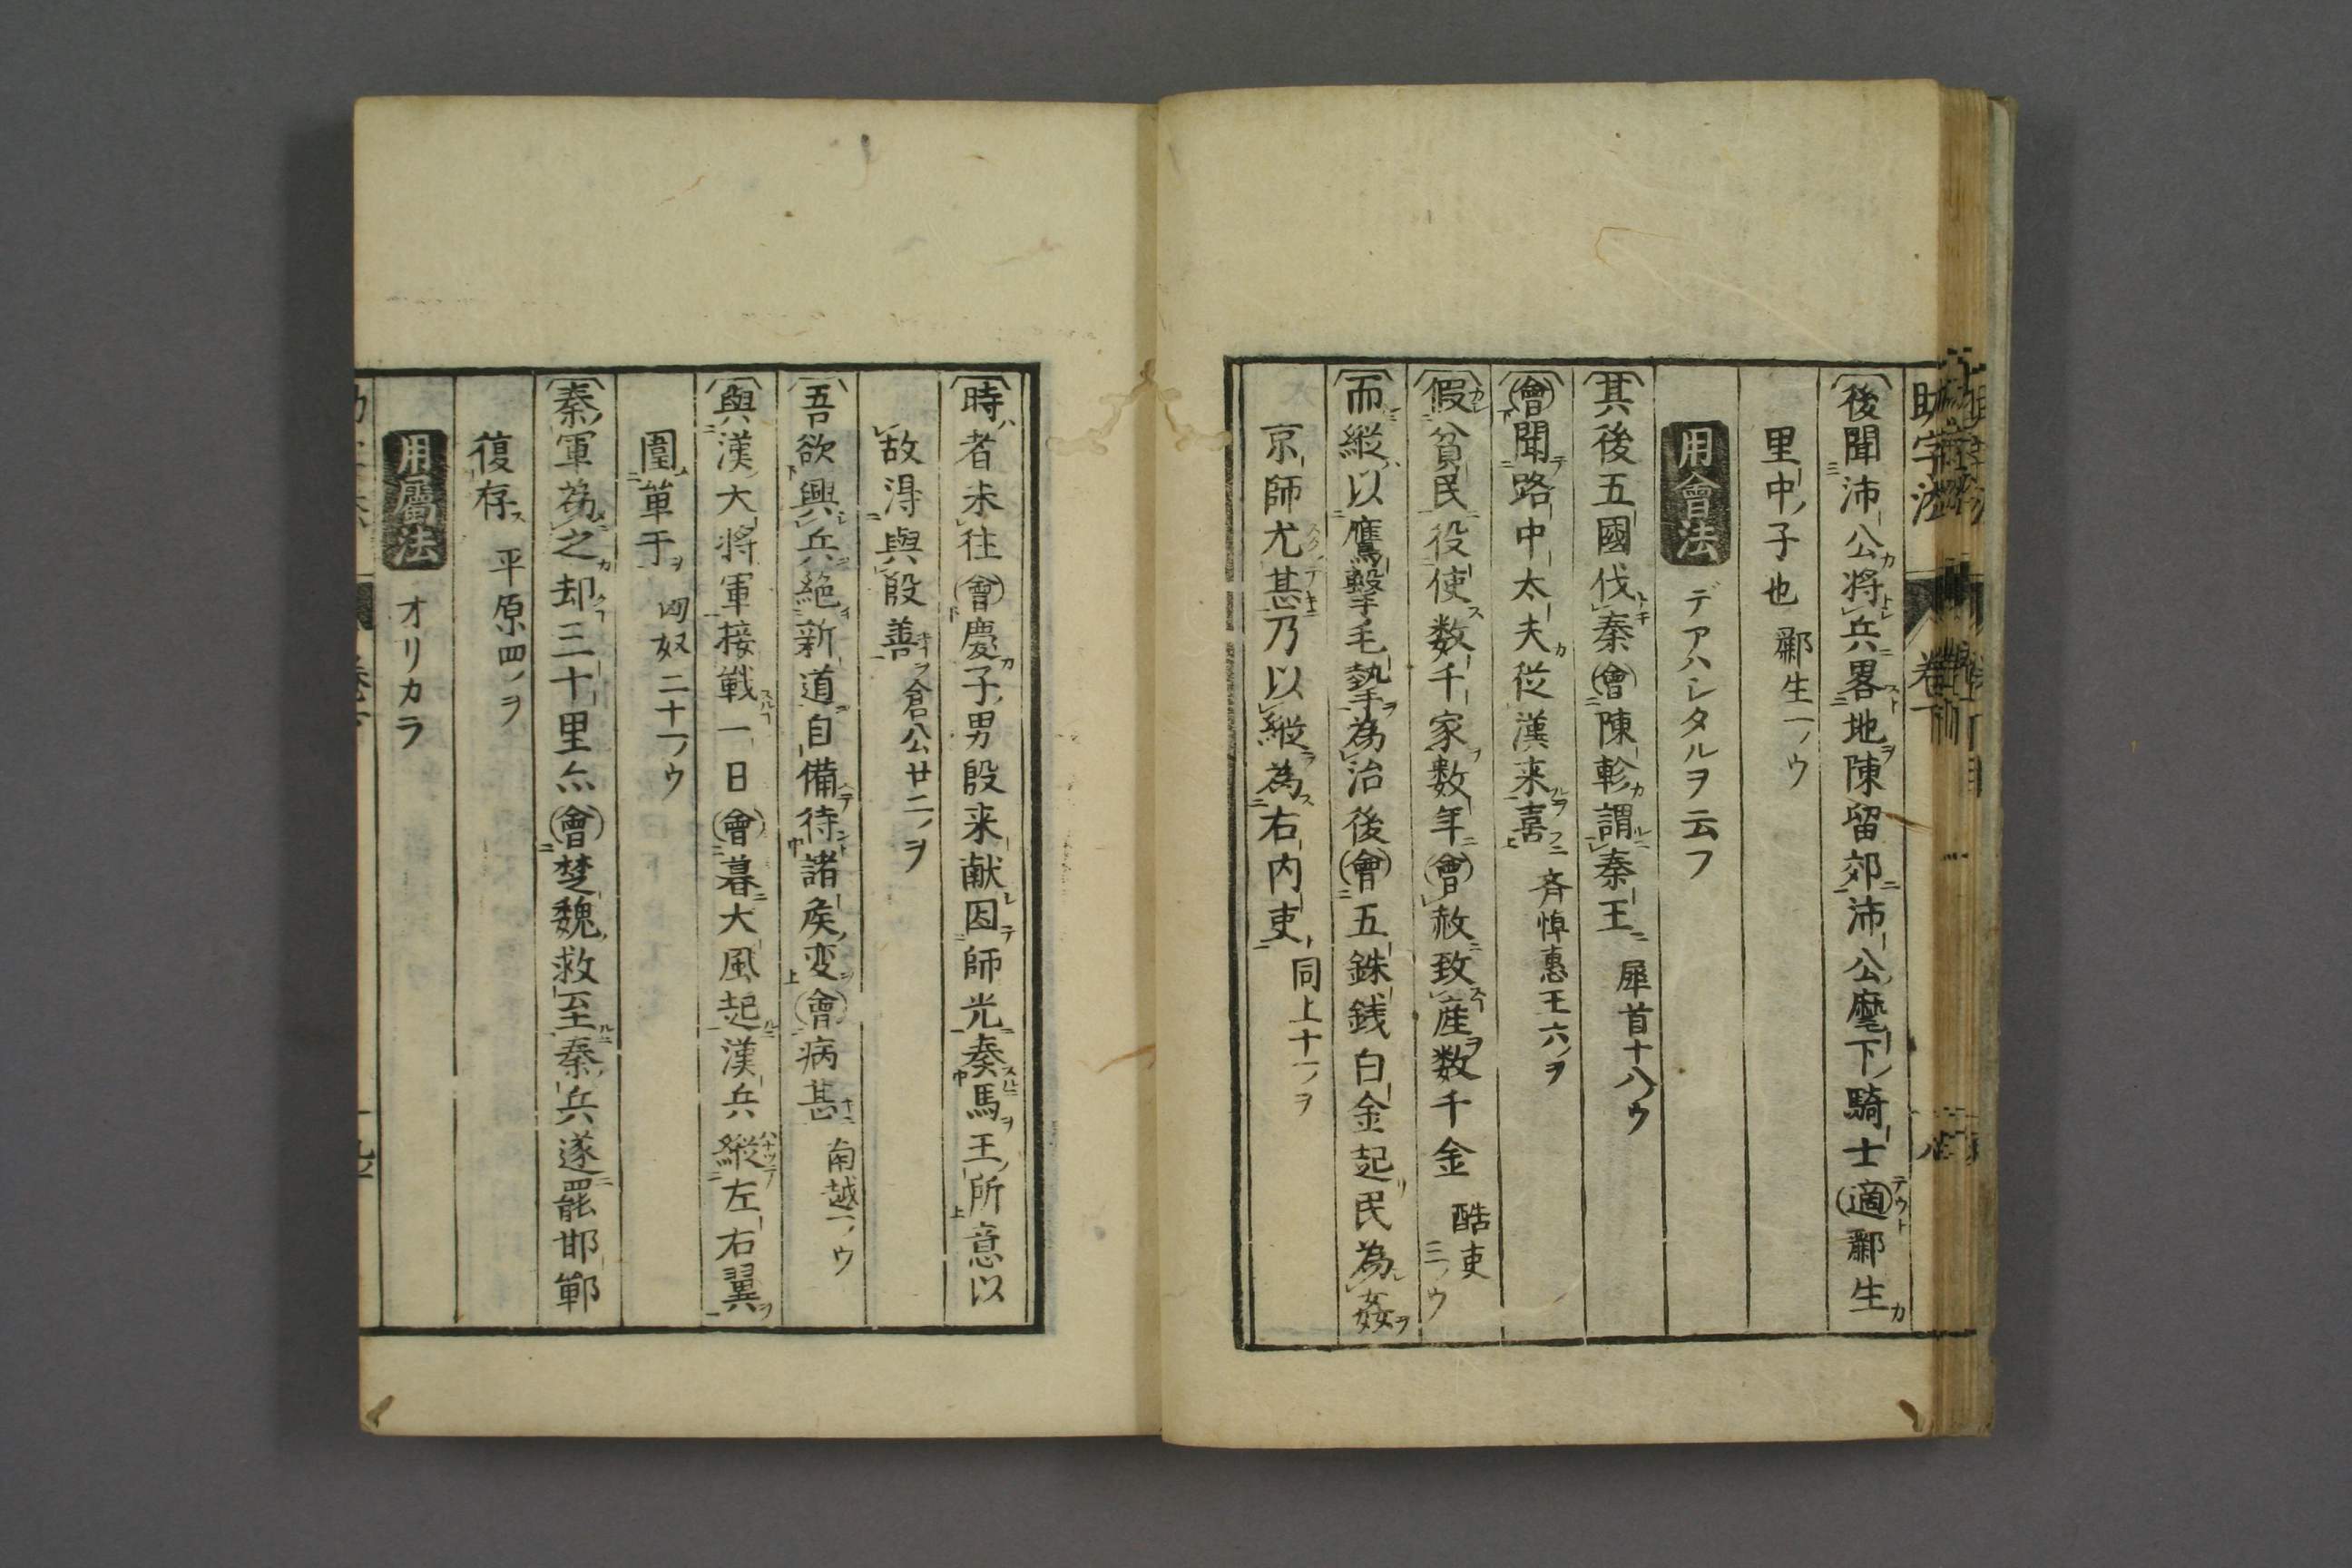 後聞沛公将兵畧地陳留郊沛公麾下騎士適酈生
里中子也 酈生一ノウ
用會法 デアハレタルヲ云フ
其後五國伐秦會陳軫謂秦王 犀首十八ウ
會聞路中太夫従漢来喜 斉悼惠王六ノヲ
假貧民役使数千家数年會赦致産数千金 酷吏三ノウ
而縦以鷹擊毛摯為治後會五銖銭白金起民為姦
京師尤甚乃以縦為右内吏 同上十一ノヲ
時者未往會慶子男殷来献因師光奏馬王所意以
故淂與殷善 倉公廿二ノヲ
吾欲興兵絶新道自備待諸矦変會病甚 南越一ノウ
與漢大将軍接戦一日會暮大風起漢兵縦左右翼
圍単于 匈奴二十一ノウ
秦軍為之却三十里亦會楚魏救至秦兵遂罷邯鄲
復存 平原四ノヲ
用屬法 オリカラ